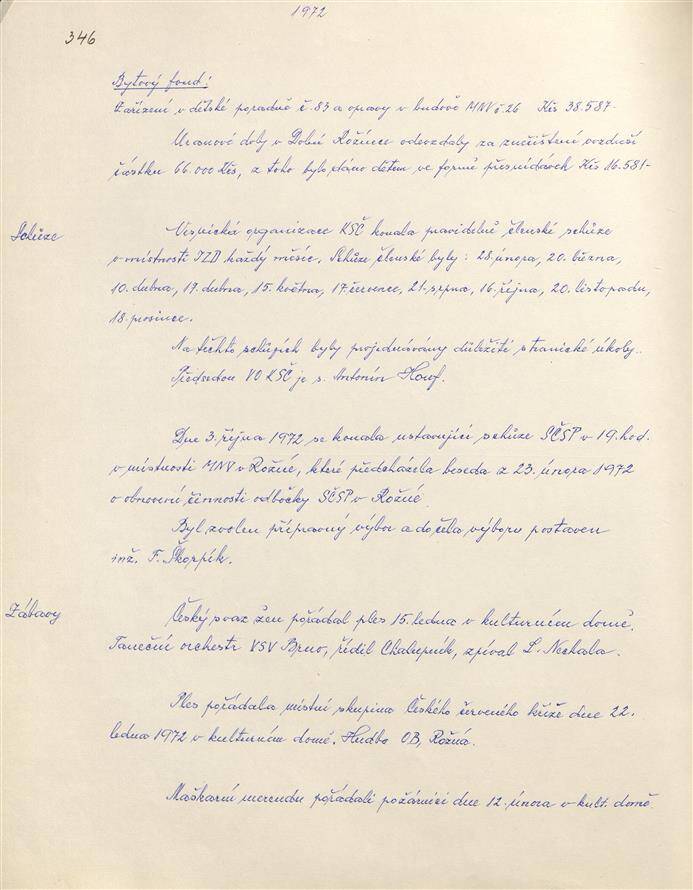 1972
346
Bytový fond:
Zařízení v dětské poradně č. 83 a opravy v budově MNV č. 26 Kčs 38.587-
Uranové doly v Dolní Rožínce odevzdaly za znečištění ovzduší
částku 66.000 Kčs, z toho bylo dáno dětem ve formě přesnídávek Kčs 16.581-
Schůze
Vesnická organizace KSČ konala pravidelně členské schůze
v místnosti JZD každý měsíc. Schůze členské byly: 28. února, 20. března,
10. dubna, 19. dubna, 15. května, 17. července, 21. srpna, 16. října, 20. listopadu,
18. prosince.
Na těchto schůzích byly projednávány důležité stranické úkoly.
Předsedou VO KSČ je s. Antonín
Dne 3. října 1972 se konala ustavující schůze SČSP v 19. hod.
v místnosti MNV v Rožné, které předcházela beseda z 23. února 1972
o obnovení činnosti odbočky SČSP v Rožné
Byl zvolen přípravný výbor a do čela výboru postaven
inž. F. Škorpík.
Zábavy
Český svaz žen pořádal ples 15. ledna v kulturním domě.
Taneční orchestr VSV Brno, řídil Chalupník, zpíval L. Nechala.
Ples pořádala místní skupina Českého červeného kříže dne 22.
ledna 1972 v kulturním domě. Hudba OB, Rožná.
Maškarní merendu pořádali požárníci dne 12. února v kult. domě.